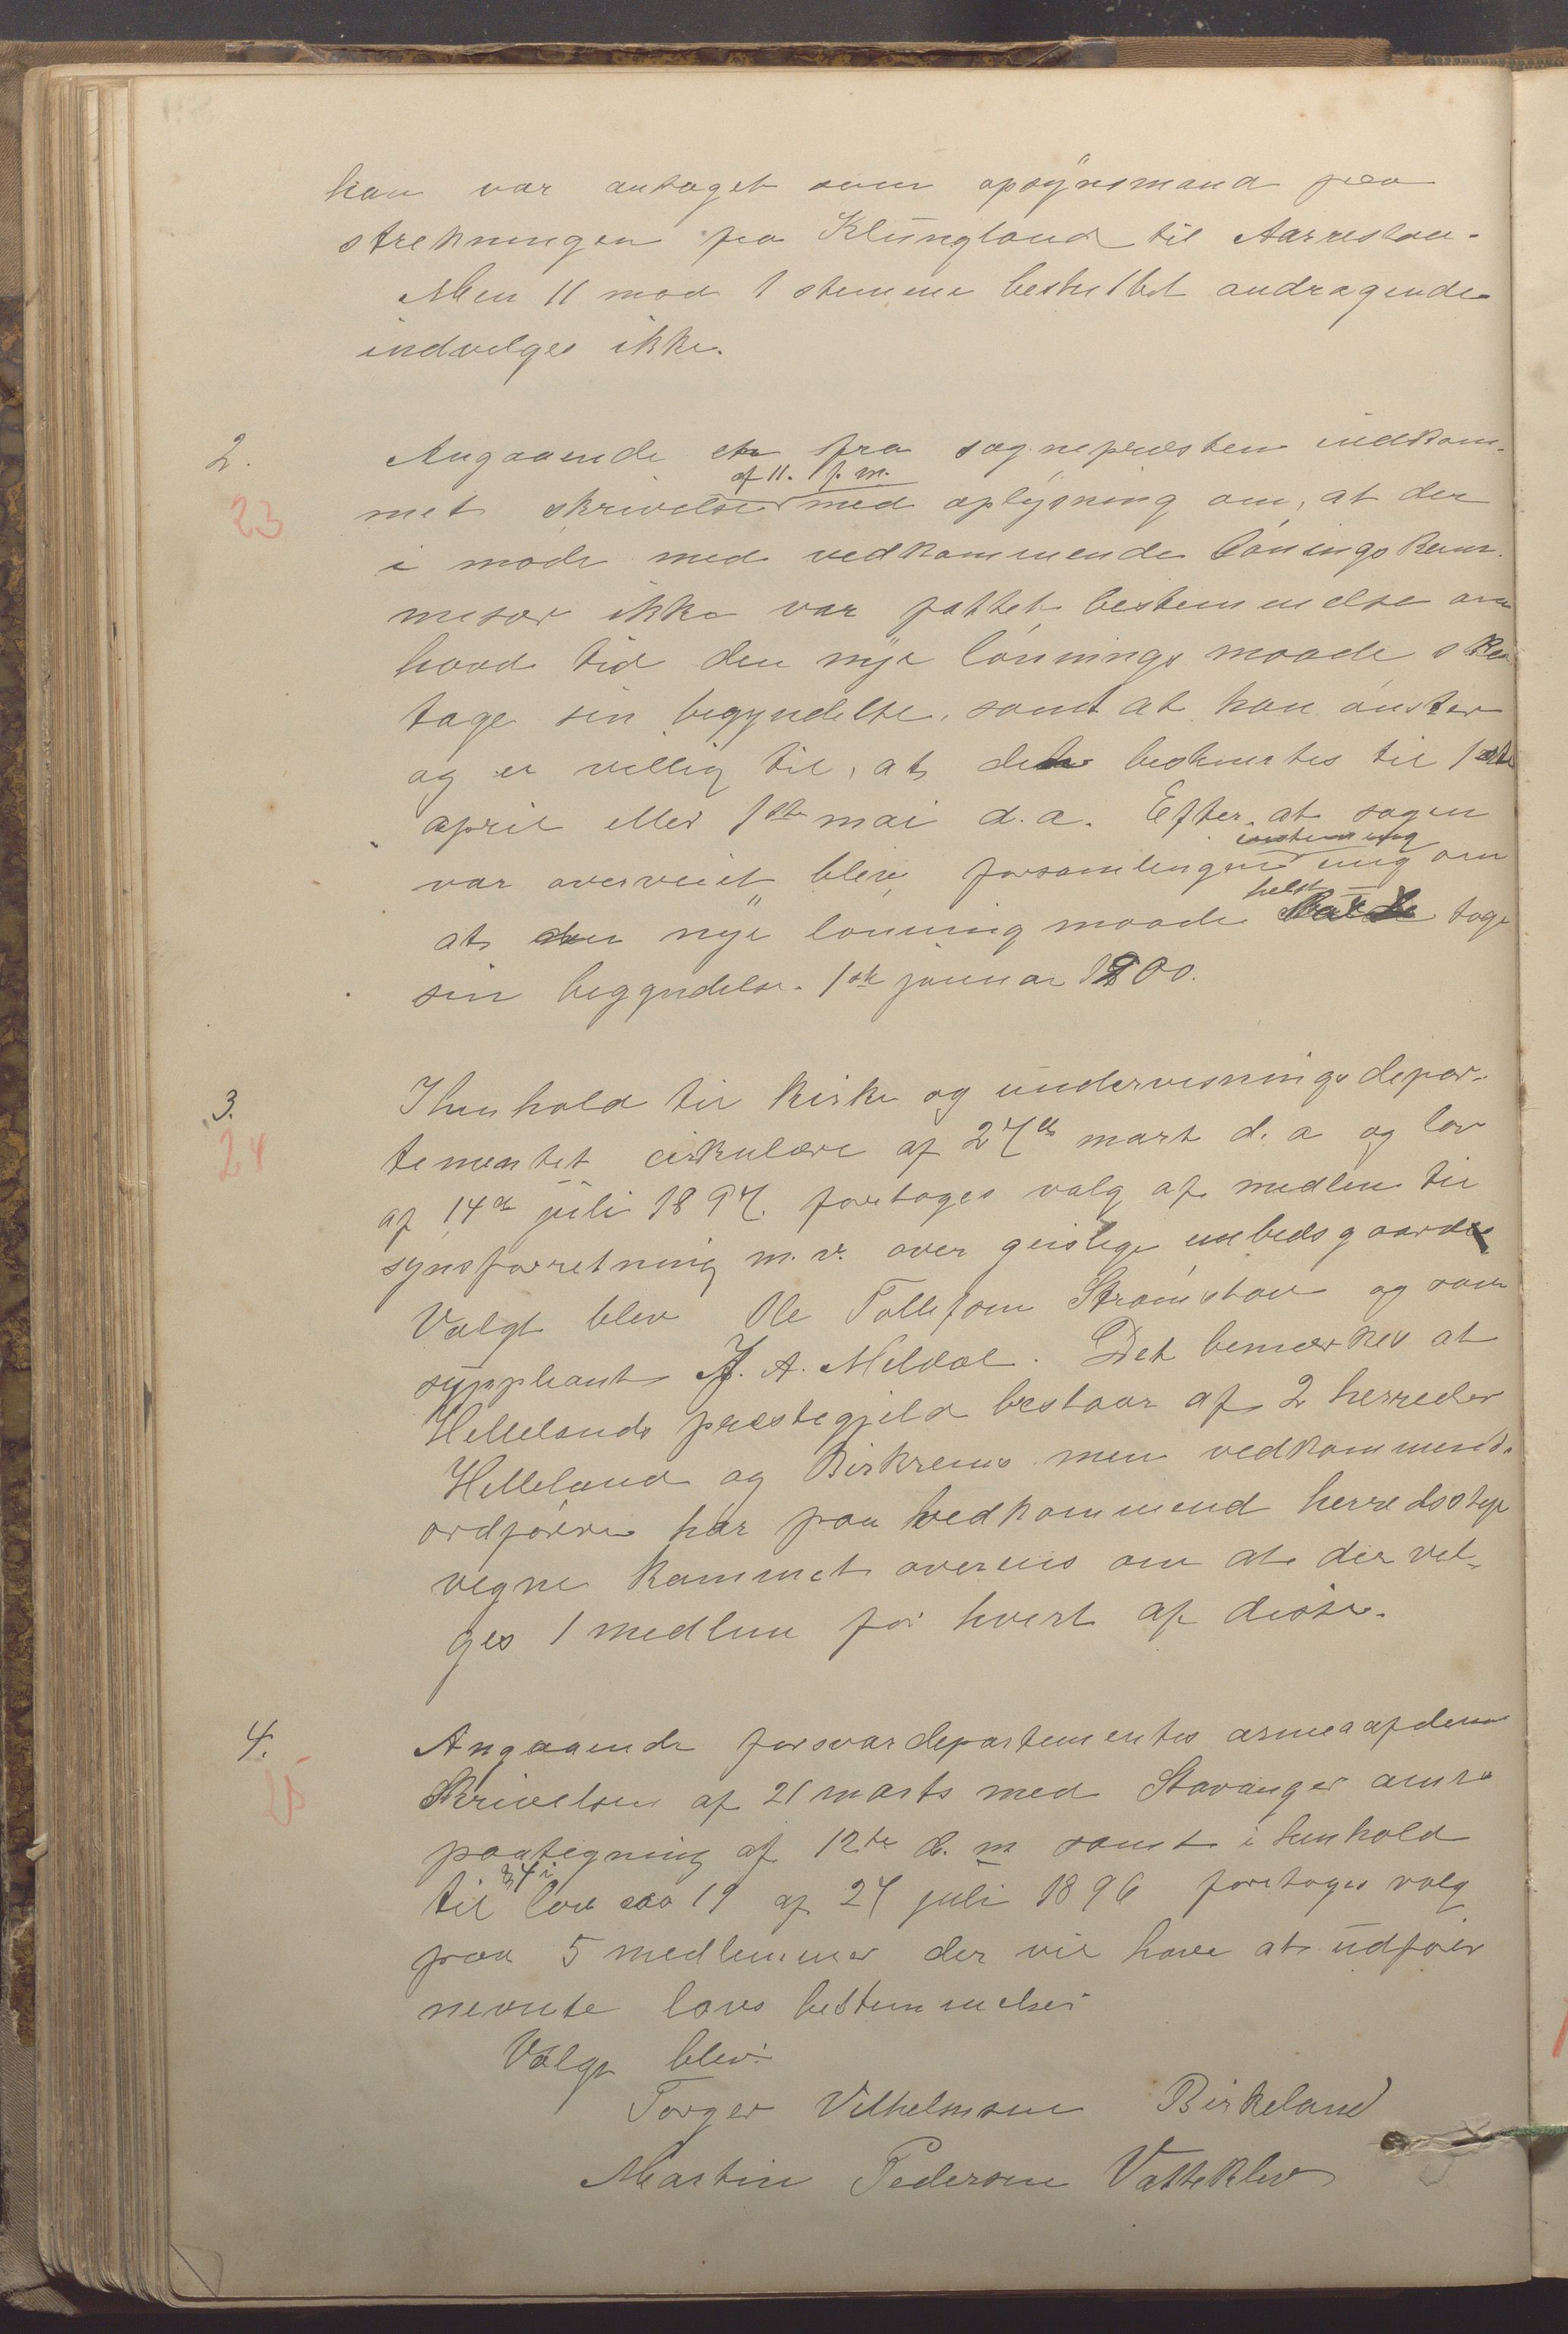 han var antaget som opsÿnsmand paa
strekningen fra Klüngland til Aarrestau.
Men 11 mod 1 stemme besluttet andragende
indvelges ikke.
2.
23
Angaaende en fra sognepresten indkom-
af 11. f. m.
met skrivelse med oplÿsning om, at der
i møde med vedkommende lønings kom-
misær ikke var fattet bestemmelse om
hvad tid den nÿe lønnings maade skal
tage sin begyndelse, samt at han ønsker
og er villig til, at det beskuttes til 1ste
april eller 1ste mai d.a. Efter at sagen
var overveiet blev forsamlingen enig om
at den nÿe lønning maade helst tage
sin begyndelse 1ste januar 1900.
3.
24
I henhold til kirke og ündervisnings depar-
tementet cirkulære af 27de mart d. a og lov
af 14de juli 1897. foretages valg af medlem til
synsforretning m. v. over geislige embedsgaarde
Valgt blev Ole Tollefsen Strømstøu og som
sÿppleant J. A. Meldal. Det bemærkes at
Hellelands prestegjeld bestaar af 2 herreder
Helleland og Birkrems men vedkommende
ordfører har paa vedkommend herredsstyr
vegne kommet overens om at der vel-
ges 1 medlem for hvert af disse.
4.
25
Angaaende forsvardepartementes armeafdem
Skrivelsen af 21 marts med Stavanger amts
paategning af 12te d. m samt i henhold
til § 4 i lov no 19 af 27 juli 1896 foretages valg
paa 5 medlemmer der vil have at üdføer
nevnte lovs bestemmelser
Valgt blev:
Torger Vilhelmsen Birkeland
Martin Pedersen Vatteklev